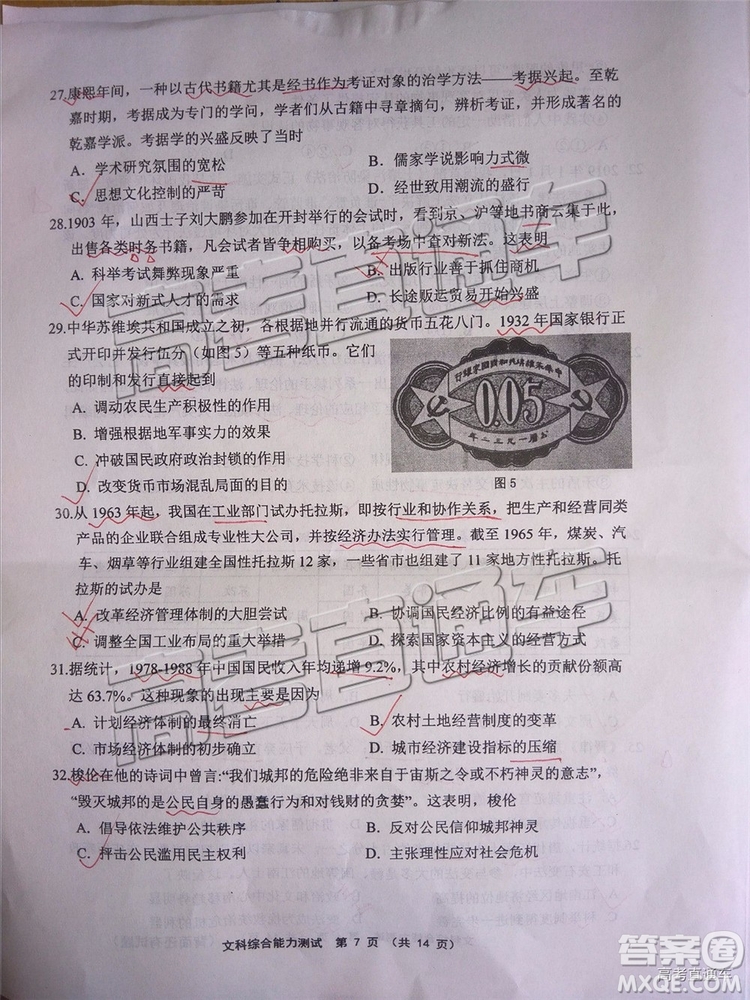 27.康熙年间，一种以古代书籍尤其是经书作为考证对象的治学方法——考据兴起。至乾
嘉时期，考据成为专门的学问，学者们从古籍中寻章摘句，辨析考证，并形成著名的
乾嘉学派。考据学的兴盛反映了当时
A. 学术研究氛围的宽松 B. 儒家学说影响力式微
C. 思想文化控制的严苛 D. 经世致用潮流的盛行
28.1903 年，山西士子刘大鹏参加在开封举行的会试时，看到京、沪等地书商云集于此，
出售各类时务书籍，凡会试者皆争相购买，以备考场中查对新法。这表明
A. 科举考试舞弊现象严重 B. 出版行业善于抓住商机
C. 国家对新式人才的需求 D. 长途贩运贸易开始兴盛
29.中华苏维埃共和国成立之初，各根据地并行流通的货币五花八门。1932 年国家银行正
式开印并发行伍分（如图 5）等五种纸币。它们
的印制和发行直接起到
A. 调动农民生产积极性的作用
B. 增强根据地军事实力的效果
C. 冲破国民政府政治封锁的作用
D. 改变货币市场混乱局面的目的
中华苏维埃共和国国家银行
0.05
公历一九三二年
图 5
30.从 1963 年起，我国在工业部门试办托拉斯，即按行业和协作关系，把生产和经营同类
产品的企业联合组成专业性大公司，并按经济办法实行管理。截至 1965 年，煤炭、汽
车、烟草等行业组建全国性托拉斯 12 家，一些省市也组建了 11 家地方性托拉斯。托
拉斯的试办是
A. 改革经济管理体制的大胆尝试 B. 协调国民经济比例的有益途径
C. 调整全国工业布局的重大举措 D. 探索国家资本主义的经营方式
31.据统计，1978-1988 年中国国民收入年均递增 9.2%，其中农村经济增长的贡献份额高
达 63.7%。这种现象的出现主要是因为
A. 计划经济体制的最终消亡 B. 农村土地经营制度的变革
C. 市场经济体制的初步确立 D. 城市经济建设指标的压缩
32.梭伦在他的诗词中曾言:“我们城邦的危险绝非来自于宙斯之令或不朽神灵的意志”，
“毁灭城邦的是公民自身的愚蠢行动和对钱财的贪婪”。这表明，梭伦
A. 倡导依法维护公共秩序 B. 反对公民信仰城邦神灵
C. 抨击公民滥用民主权利 D. 主张理性应对社会危机
文科综合能力测试 第 7 页 （共 14 页）
高考直通车
高考直通车
答案圈
高考直通车